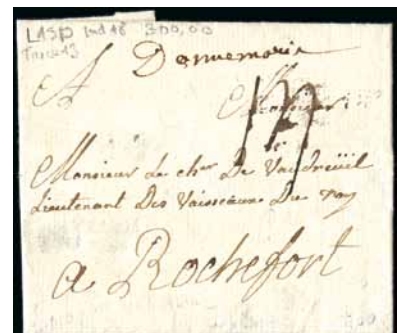 L1SP Ind 16 300,00
A Dannemarie
Monsieur
Monsieur Le cher De Vaudreüil
Lieutenant Des Vaisseaux Du roy
a Rochefort